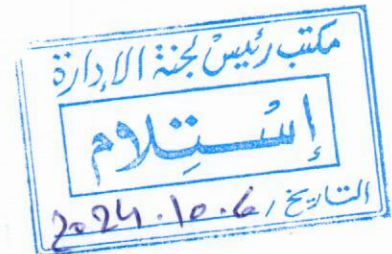 مكتب رئيس لجنة الإدارة
إستلام
التاريخ / 2024.10.6